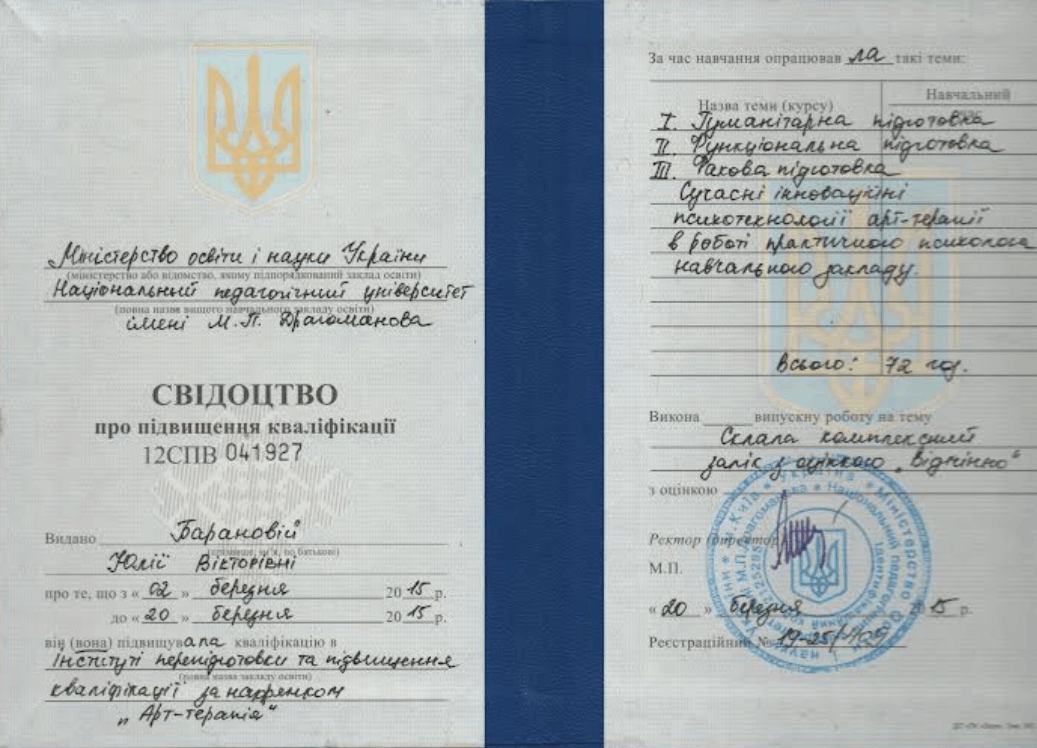 Міністерство освіти і науки України
(міністерство або відомство, якому підпорядкований заклад освіти)
Національний педагогічний університет
(повна назва вищого навчального закладу освіти)
імені М.П. Драгоманова
СВІДОЦТВО
про підвищення кваліфікації
12СПВ 041927
Видано Барановій
(прізвище, ім'я, по батькові)
Юлії Вікторівні
про те, що з « 02 » березня 20 15 р.
до « 20 » березня 20 15 р.
він (вона) підвищувала кваліфікацію в
Інституті перепідготовки та підвищення
(повна назва закладу освіти)
кваліфікації за напрямком
„Арт-терапія"
За час навчання опрацював ла такі теми:
Назва теми (курсу)
Навчальний
I. Гуманітарна підготовка
II. Функціональна підготовка
III. Фахова підготовка
Сучасні інноваційні
психотехнології арт-терапії
в роботі практичного психолога
навчального закладу.
Всього: 72 год.
Викона випускну роботу на тему
Склала комплексний
залік з оцінкою „Відмінно"
з оцінкою
Ректор (директор
М.П.
« 20 » березня 2015 р.
Реєстраційний № 19-25/